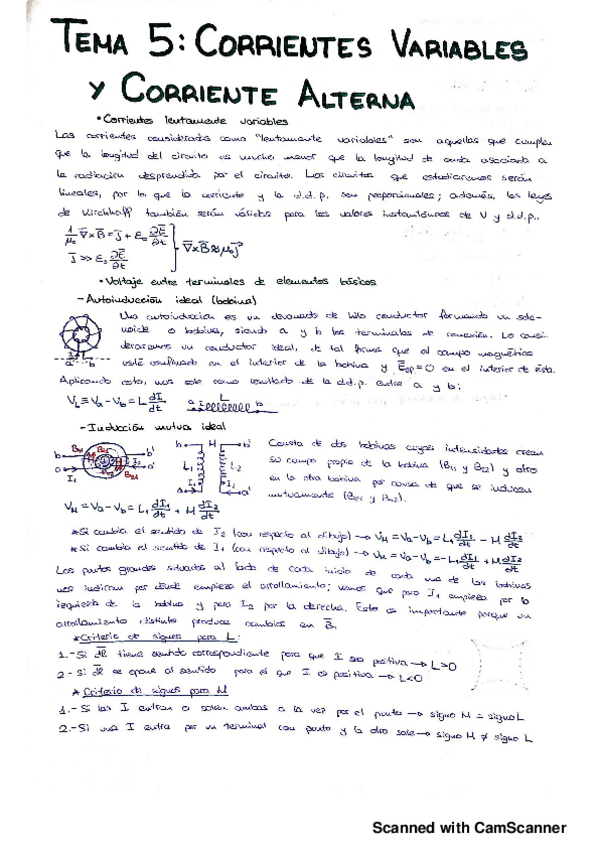 TEMA 5: CORRIENTES VARIABLES
Y CORRIENTE ALTERNA
• Corrientes lentamente variables
Las corrientes consideradas como "lentamente variables" son aquellas que cumplen
que la longitud del circuito es mucho menor que la longitud de onda asociada a
la radiación desprendida por el circuito. Los circuitos que estudiaremos serán
lineales, por lo que la corriente y la d.d.p. son proporcionales; además, las leyes
de Kirchhoff también serán válidas para los valores instantáneos de V y d.d.p..
1/μ₀ ∇×B = J + ε₀ ∂E/∂t
J >> ε₀ ∂E/∂t
∇×B ≈ μ₀J
• Voltaje entre terminales de elementos básicos
- Autoinducción ideal (bobina)
Una autoinducción es un devanado de hilo conductor formando un sole-
noide o bobina, siendo a y b los terminales de conexión. Lo consi-
deraremos un conductor ideal, de tal forma que el campo magnético
esté confinado en el interior de la bobina y = 0 en el interior de ésta.
Aplicando esto, nos sale como resultado de la d.d.p. entre a y b:
a b
V_L ≡ Va - Vb = L dI/dt
a L b
- Inducción mutua ideal
b b'
a I₁ a'
b M b'
L₁ L₂
a a'
Consta de dos bobinas cuyas intensidades crean
su campo propio de la bobina (B₁₁ y B₂₂) y otro
en la otra bobina por causa de que se inducen
mutuamente (B₁₂ y B₂₁).
V_M = Va - Vb = L₁ dI₁/dt + M dI₂/dt
* Si cambia el sentido de I₂ (con respecto al dibujo) → V_M = Va - Vb = L₁ dI₁/dt - M dI₂/dt
* Si cambia el sentido de I₁ (con respecto al dibujo) → V_M = Va - Vb = -L₁ dI₁/dt + M dI₂/dt
Los puntos grandes situados al lado de cada inicio de cada una de las bobinas
nos indican por dónde empieza el arrollamiento; vemos que para I₁ empieza por la
izquierda de la bobina y para I₂ por la derecha. Esto es importante porque un
arrollamiento distinto produce cambios en B.
* Criterio de signos para L:
1.- Si dl tiene sentido correspondiente para que I sea positiva → L>0
2.- Si dl se opone al sentido para el que I es positiva → L<0
* Criterio de signos para M
1.- Si las I entran o salen ambas a la vez por el punto → signo M = signo L
2.- Si una I entra por un terminal con punto y la otra sale → signo M ≠ signo L
Scanned with CamScanner